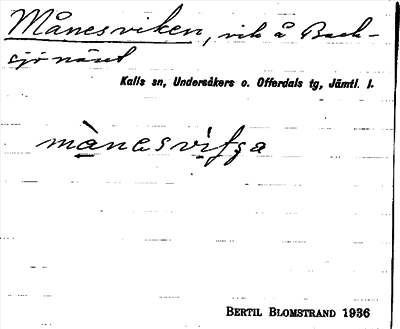 Månesviken, vik å Back-
sjönäset
Kalls sn, Undersåkers o. Offerdals tg, Jämtl. l.
mànesvifga
BERTIL BLOMSTRAND 1936